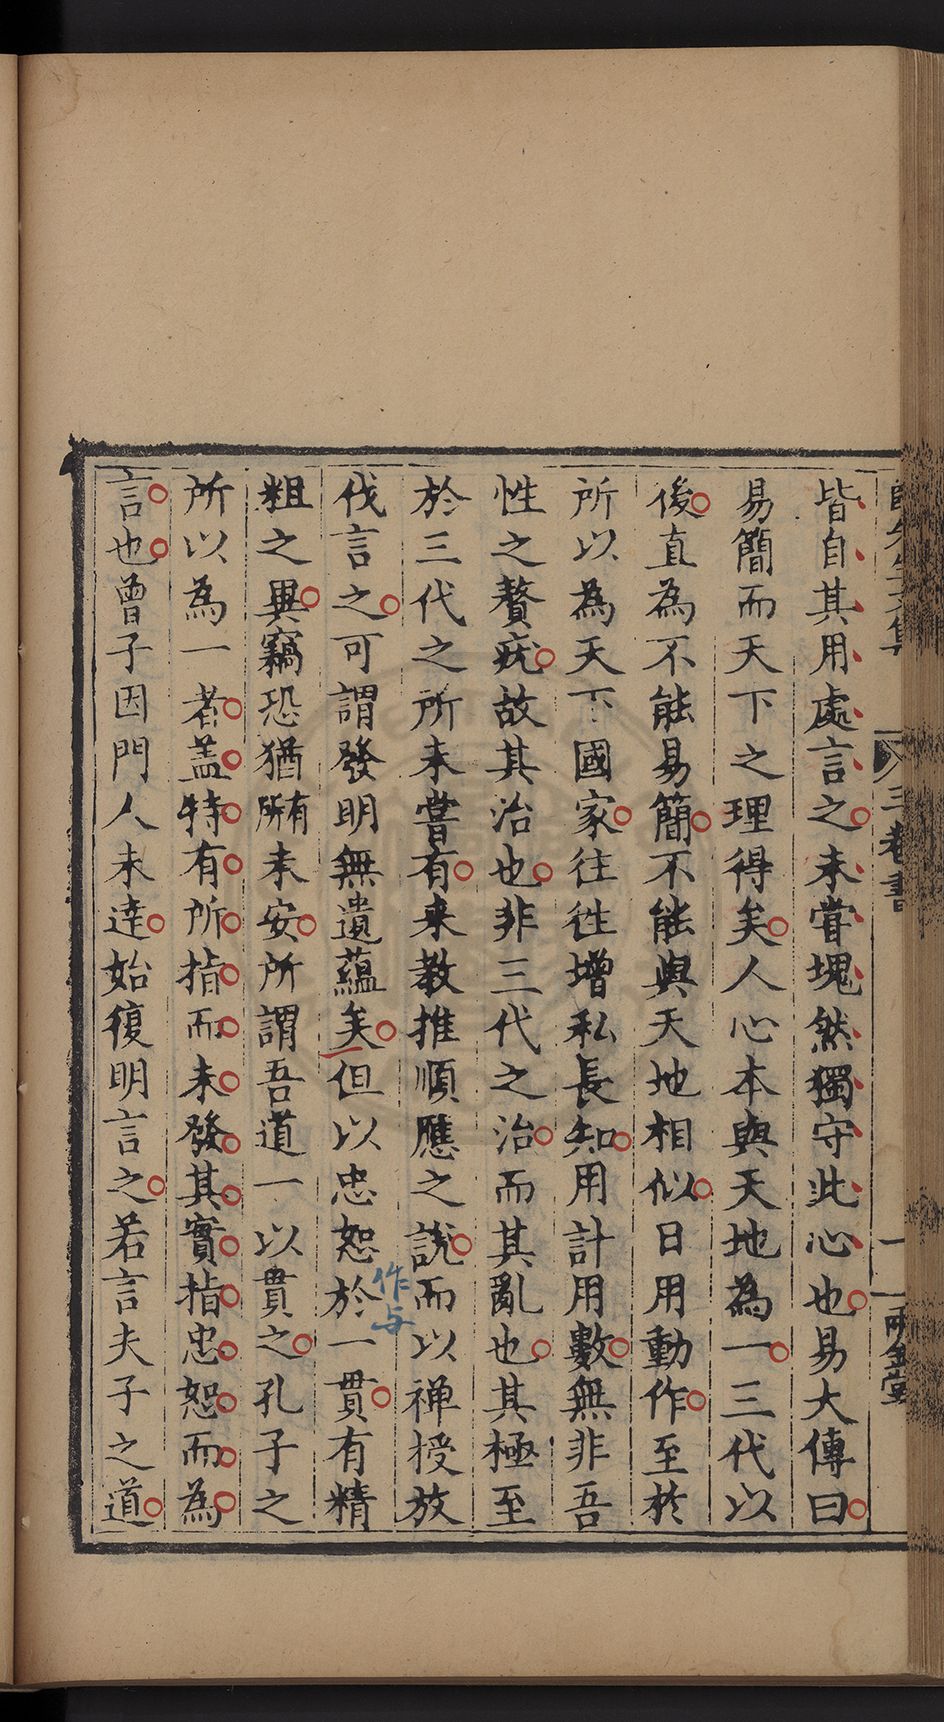 三卷書
一
兩金堂
皆自其用處言之未嘗塊然獨守此心也易大傳曰
易簡而天下之理得矣人心本與天地為一三代以
後直為不能易簡不能與天地相似日用動作至於
所以為天下國家往往增私長知用計用數無非吾
性之贅疣故其治也非三代之治而其亂也其極至
於三代之所未嘗有來教推順應之說而以禅授放
伐言之可謂發明無遺蘊矣但以忠恕於一貫有精
作与
粗之異竊恐猶有所未安所謂吾道一以貫之孔子之
所以為一者盖特有所指而未發其實指忠恕而為
言也曾子因門人未達始復明言之若言夫子之道